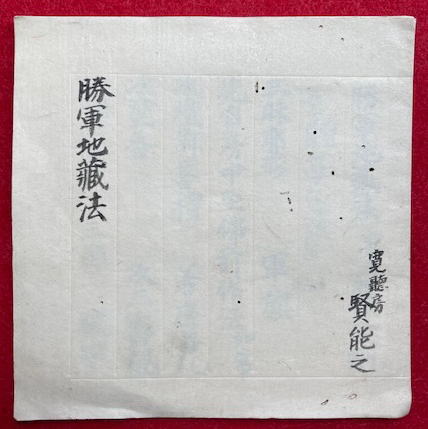 寛聽房
賢能之
勝軍地藏法